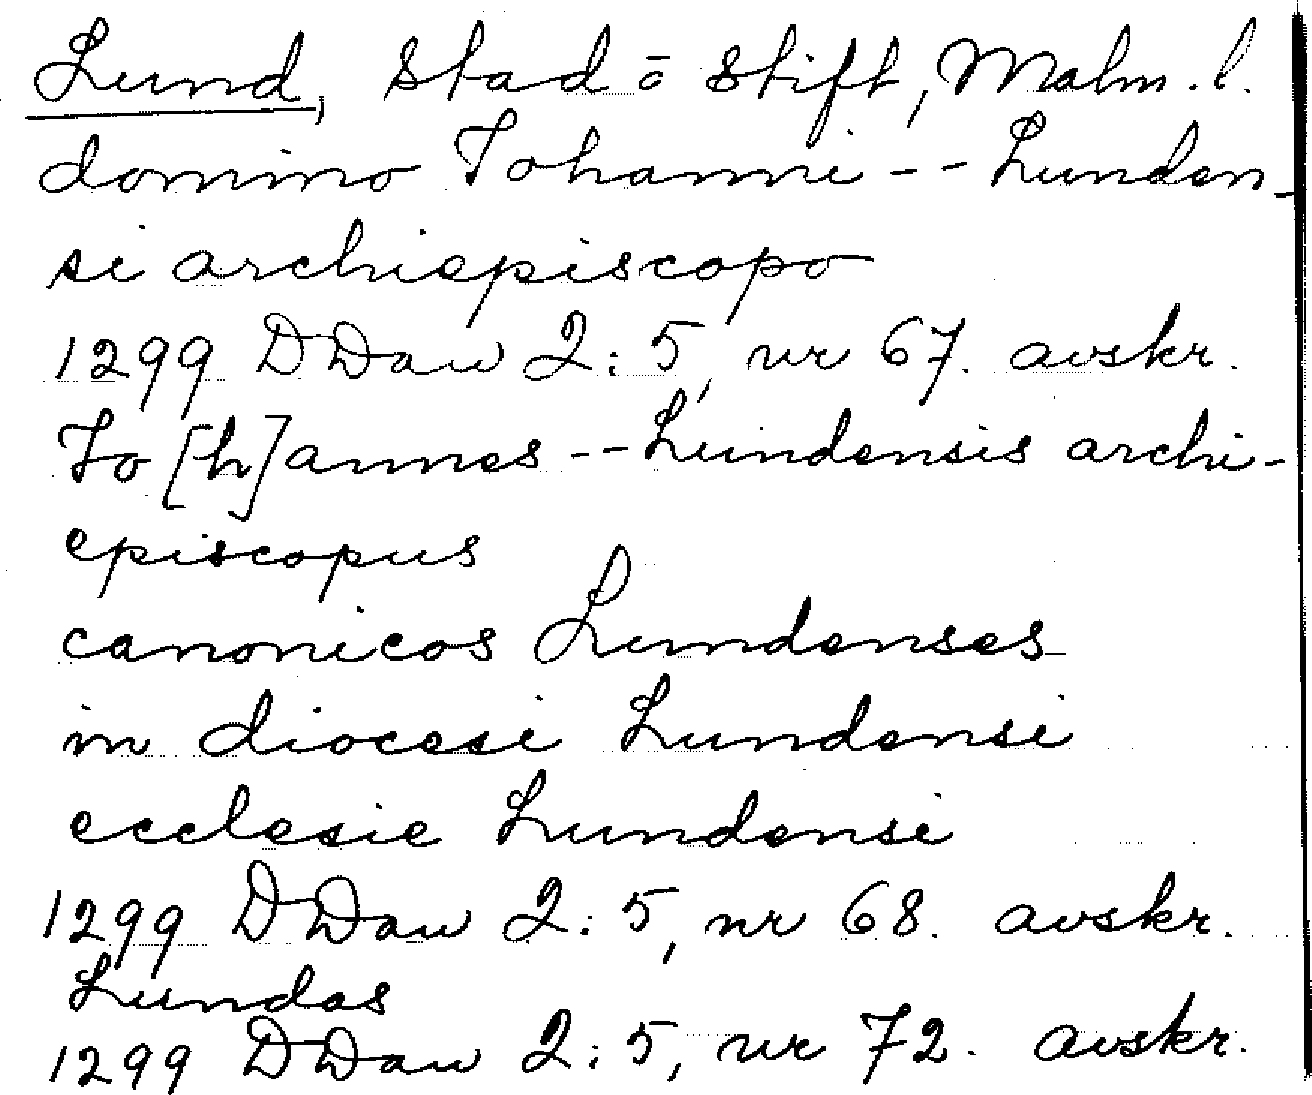 Lund, stad o stift, Malm. l.
domino Johanni -- Lunden-
si archiepiscopo
1299 DDan 2:5, nr 67. avskr.
Jo[h]annes -- Lundensis archi-
episcopus
canonicos Lundenses
in diocesi Lundensi
ecclesie Lundensi
1299 DDan 2:5, nr 68. avskr.
Lundas
1299 DDan 2:5, nr 72. avskr.